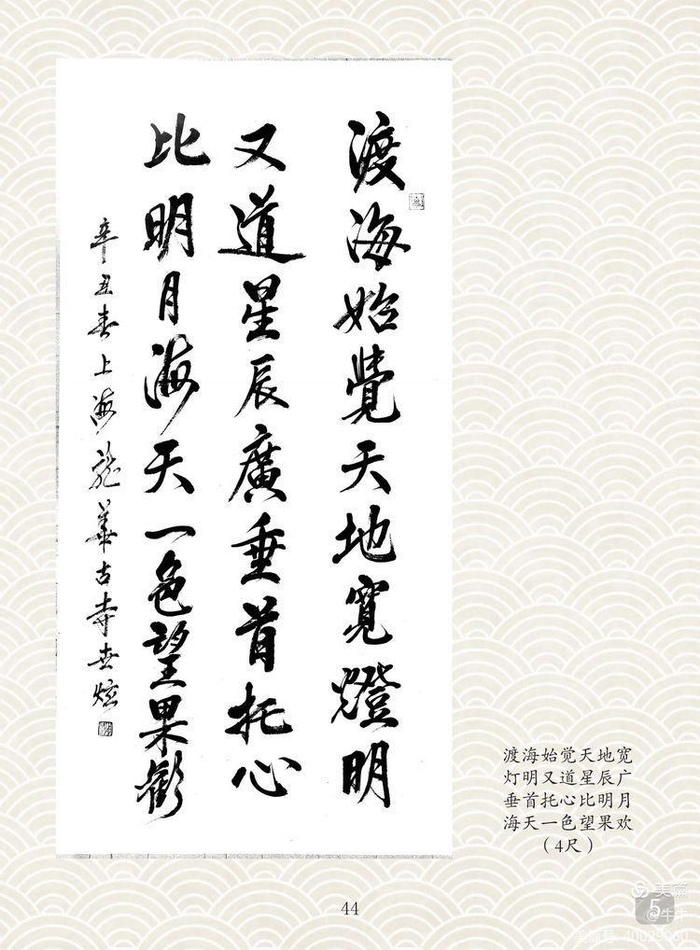 渡海始覺天地寬燈明
又道星辰廣垂首托心
比明月海天一色望果歡
辛丑春上海龍華古寺世炫
渡海始觉天地宽
灯明又道星辰广
垂首托心比明月
海天一色望果欢
(4尺)
44
美篇
5
@牛牛